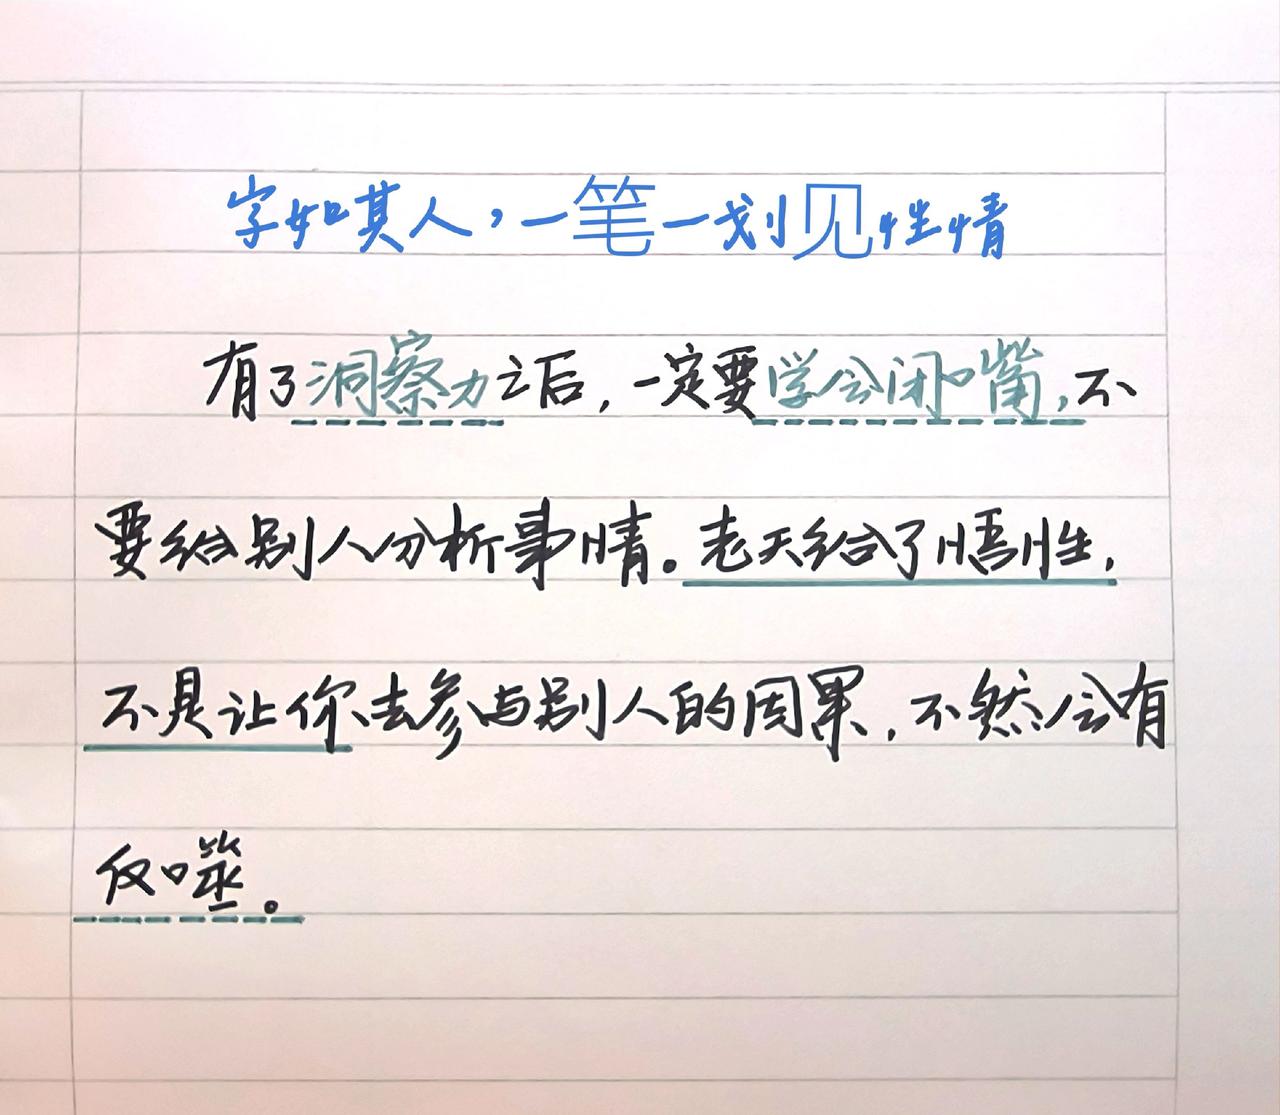 字如其人，一笔一划见性情
有了洞察力之后，一定要学会闭嘴，不
要给别人分析事情。老天给了悟性，
不是让你去参与别人的因果，不然会有
反噬。